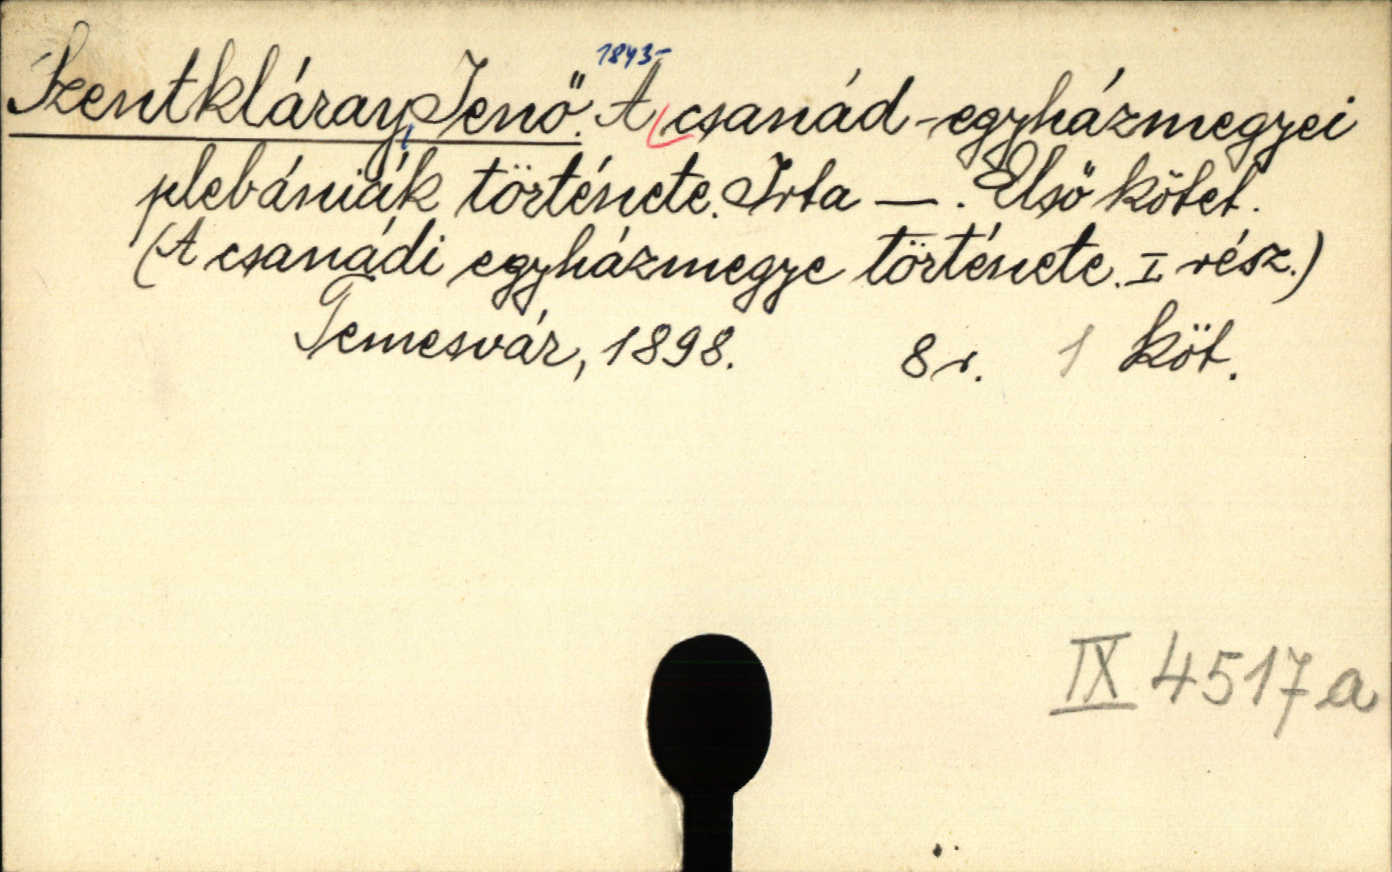 1843-
Szentkláray, Jenő. A csanád-egyházmegyei
plebániák története. Irta —. Első kötet.
(A csanádi egyházmegye története. I rész.)
Temesvár, 1898. 8 r. 1 köt.
IX 4517 a